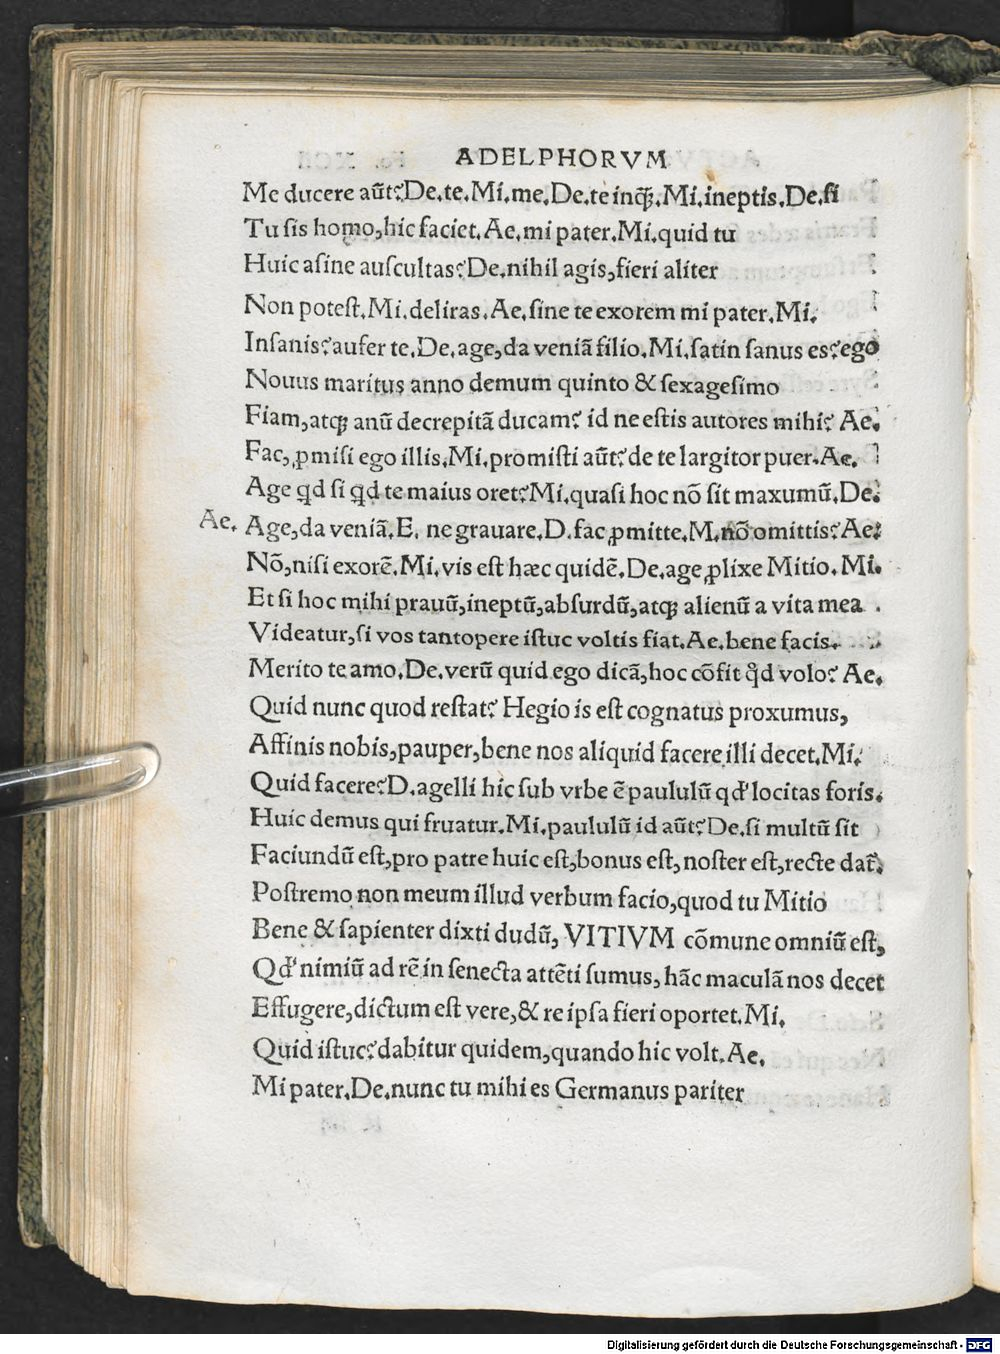 ADELPHORVM
Me ducere aūt?De.te.Mi.me.De.te inqꝫ.Mi.ineptis.De.ſi
Tu ſis homo,hic faciet.Ae.mi pater.Mi.quid tu
Huic aſine auſcultas?De.nihil agis,fieri aliter
Non poteſt.Mi.deliras.Ae.ſine te exorem mi pater.Mi.
Inſanis?aufer te.De.age,da veniā filio.Mi.ſatin ſanus es?ego
Nouus maritus anno demum quinto & ſexageſimo
Fiam,atqꝫ anū decrepitā ducam? id ne eſtis autores mihi? Ae.
Fac,ꝓmiſi ego illis.Mi.promiſti aūt?de te largitor puer.Ae.
Age qd ſi qd te maius oret?Mi.quaſi hoc nō ſit maxumū.De.
Ae. Age,da veniā.E. ne grauare.D.fac ꝓmitte.M.nō omittis?Ae.
Nō,niſi exorē.Mi.vis eſt hæc quidē.De.age ꝓlixe Mitio.Mi.
Et ſi hoc mihi prauū,ineptū,abſurdū,atqꝫ alienū a vita mea .
Videatur,ſi vos tantopere iſtuc voltis fiat.Ae.bene facis.
Merito te amo.De.verū quid ego dicā,hoc cōfit qd volo? Ae.
Quid nunc quod reſtat? Hegio is eſt cognatus proxumus,
Affinis nobis,pauper,bene nos aliquid facere illi decet.Mi.
Quid facere?D.agelli hic ſub vrbe ē paululū qď locitas foris.
Huic demus qui fruatur.Mi.paululū id aūt?De.ſi multū ſit
Faciundū eſt,pro patre huic eſt,bonus eſt,noſter eſt,recte dat̃.
Poſtremo non meum illud verbum facio,quod tu Mitio
Bene & ſapienter dixti dudū, VITIVM cōmune omniū eſt,
Qď nimiū ad rē in ſenecta attēti ſumus, hāc maculā nos decet
Effugere,dictum eſt vere,& re ipſa fieri oportet.Mi.
Quid iſtuc?dabitur quidem,quando hic volt.Ae.
Mi pater.De.nunc tu mihi es Germanus pariter
Digitalisierung gefördert durch die Deutsche Forschungsgemeinschaft - DFG